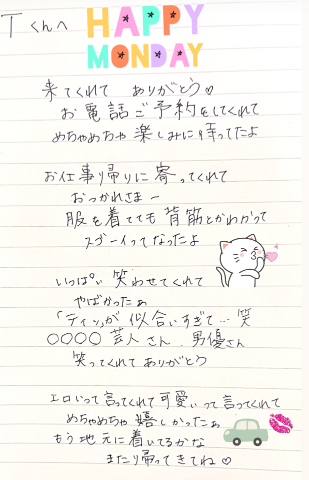 Tくんへ
HAPPY
MONDAY
来てくれて ありがとう♡
お電話ご予約をしてくれて
めちゃめちゃ楽しみに待ってたよ
お仕事帰りに寄ってくれて
おつかれさまー
服を着てても背筋とかわかって
スゴーイってなったよ
いっぱい笑わせてくれて
やばかったぁ
「ティン」が似合いすぎて…笑
○○○○芸人さん、男優さん
笑ってくれてありがとう
エロいって言ってくれて可愛いって言ってくれて
めちゃめちゃ嬉しかったぁ
もう地元に着いてるかな
またり帰ってきてね♡